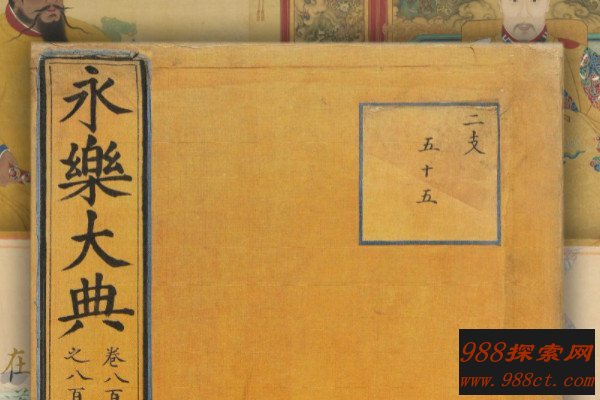 永樂大典
卷八百
之八百
二支
五十五
在
988探索网
www.988ct.com